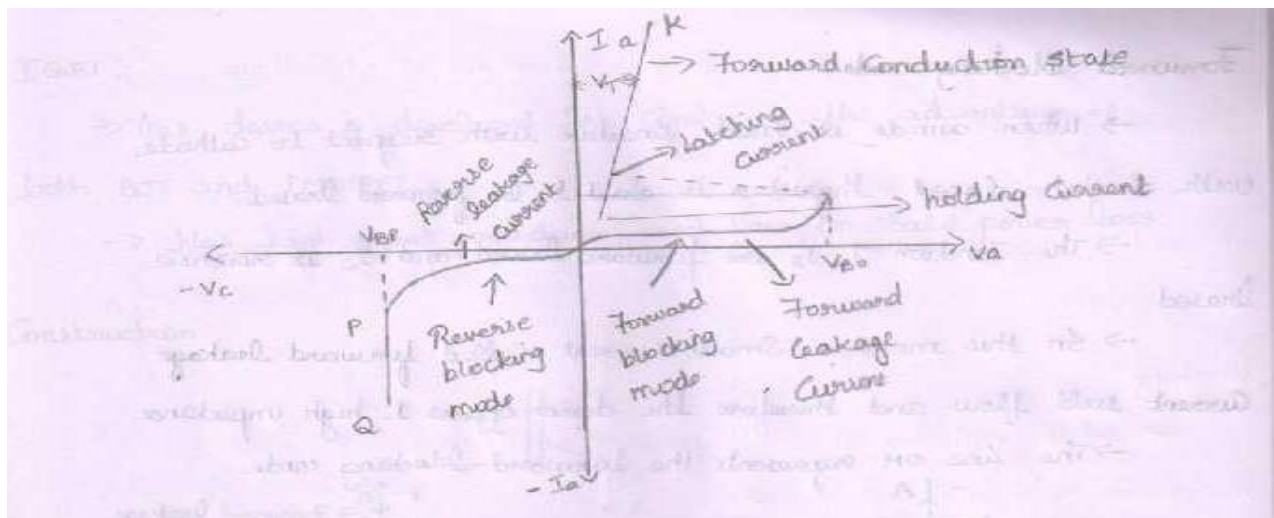 Ia
K
VT
→ Forward Conduction State
Latching
Current
Reverse
leakage
current
holding Current
VBR
VBo
Va
-Vc
P
Q
Reverse
blocking
mode
Forward
blocking
mode
Forward
Leakage
Current
-Ia